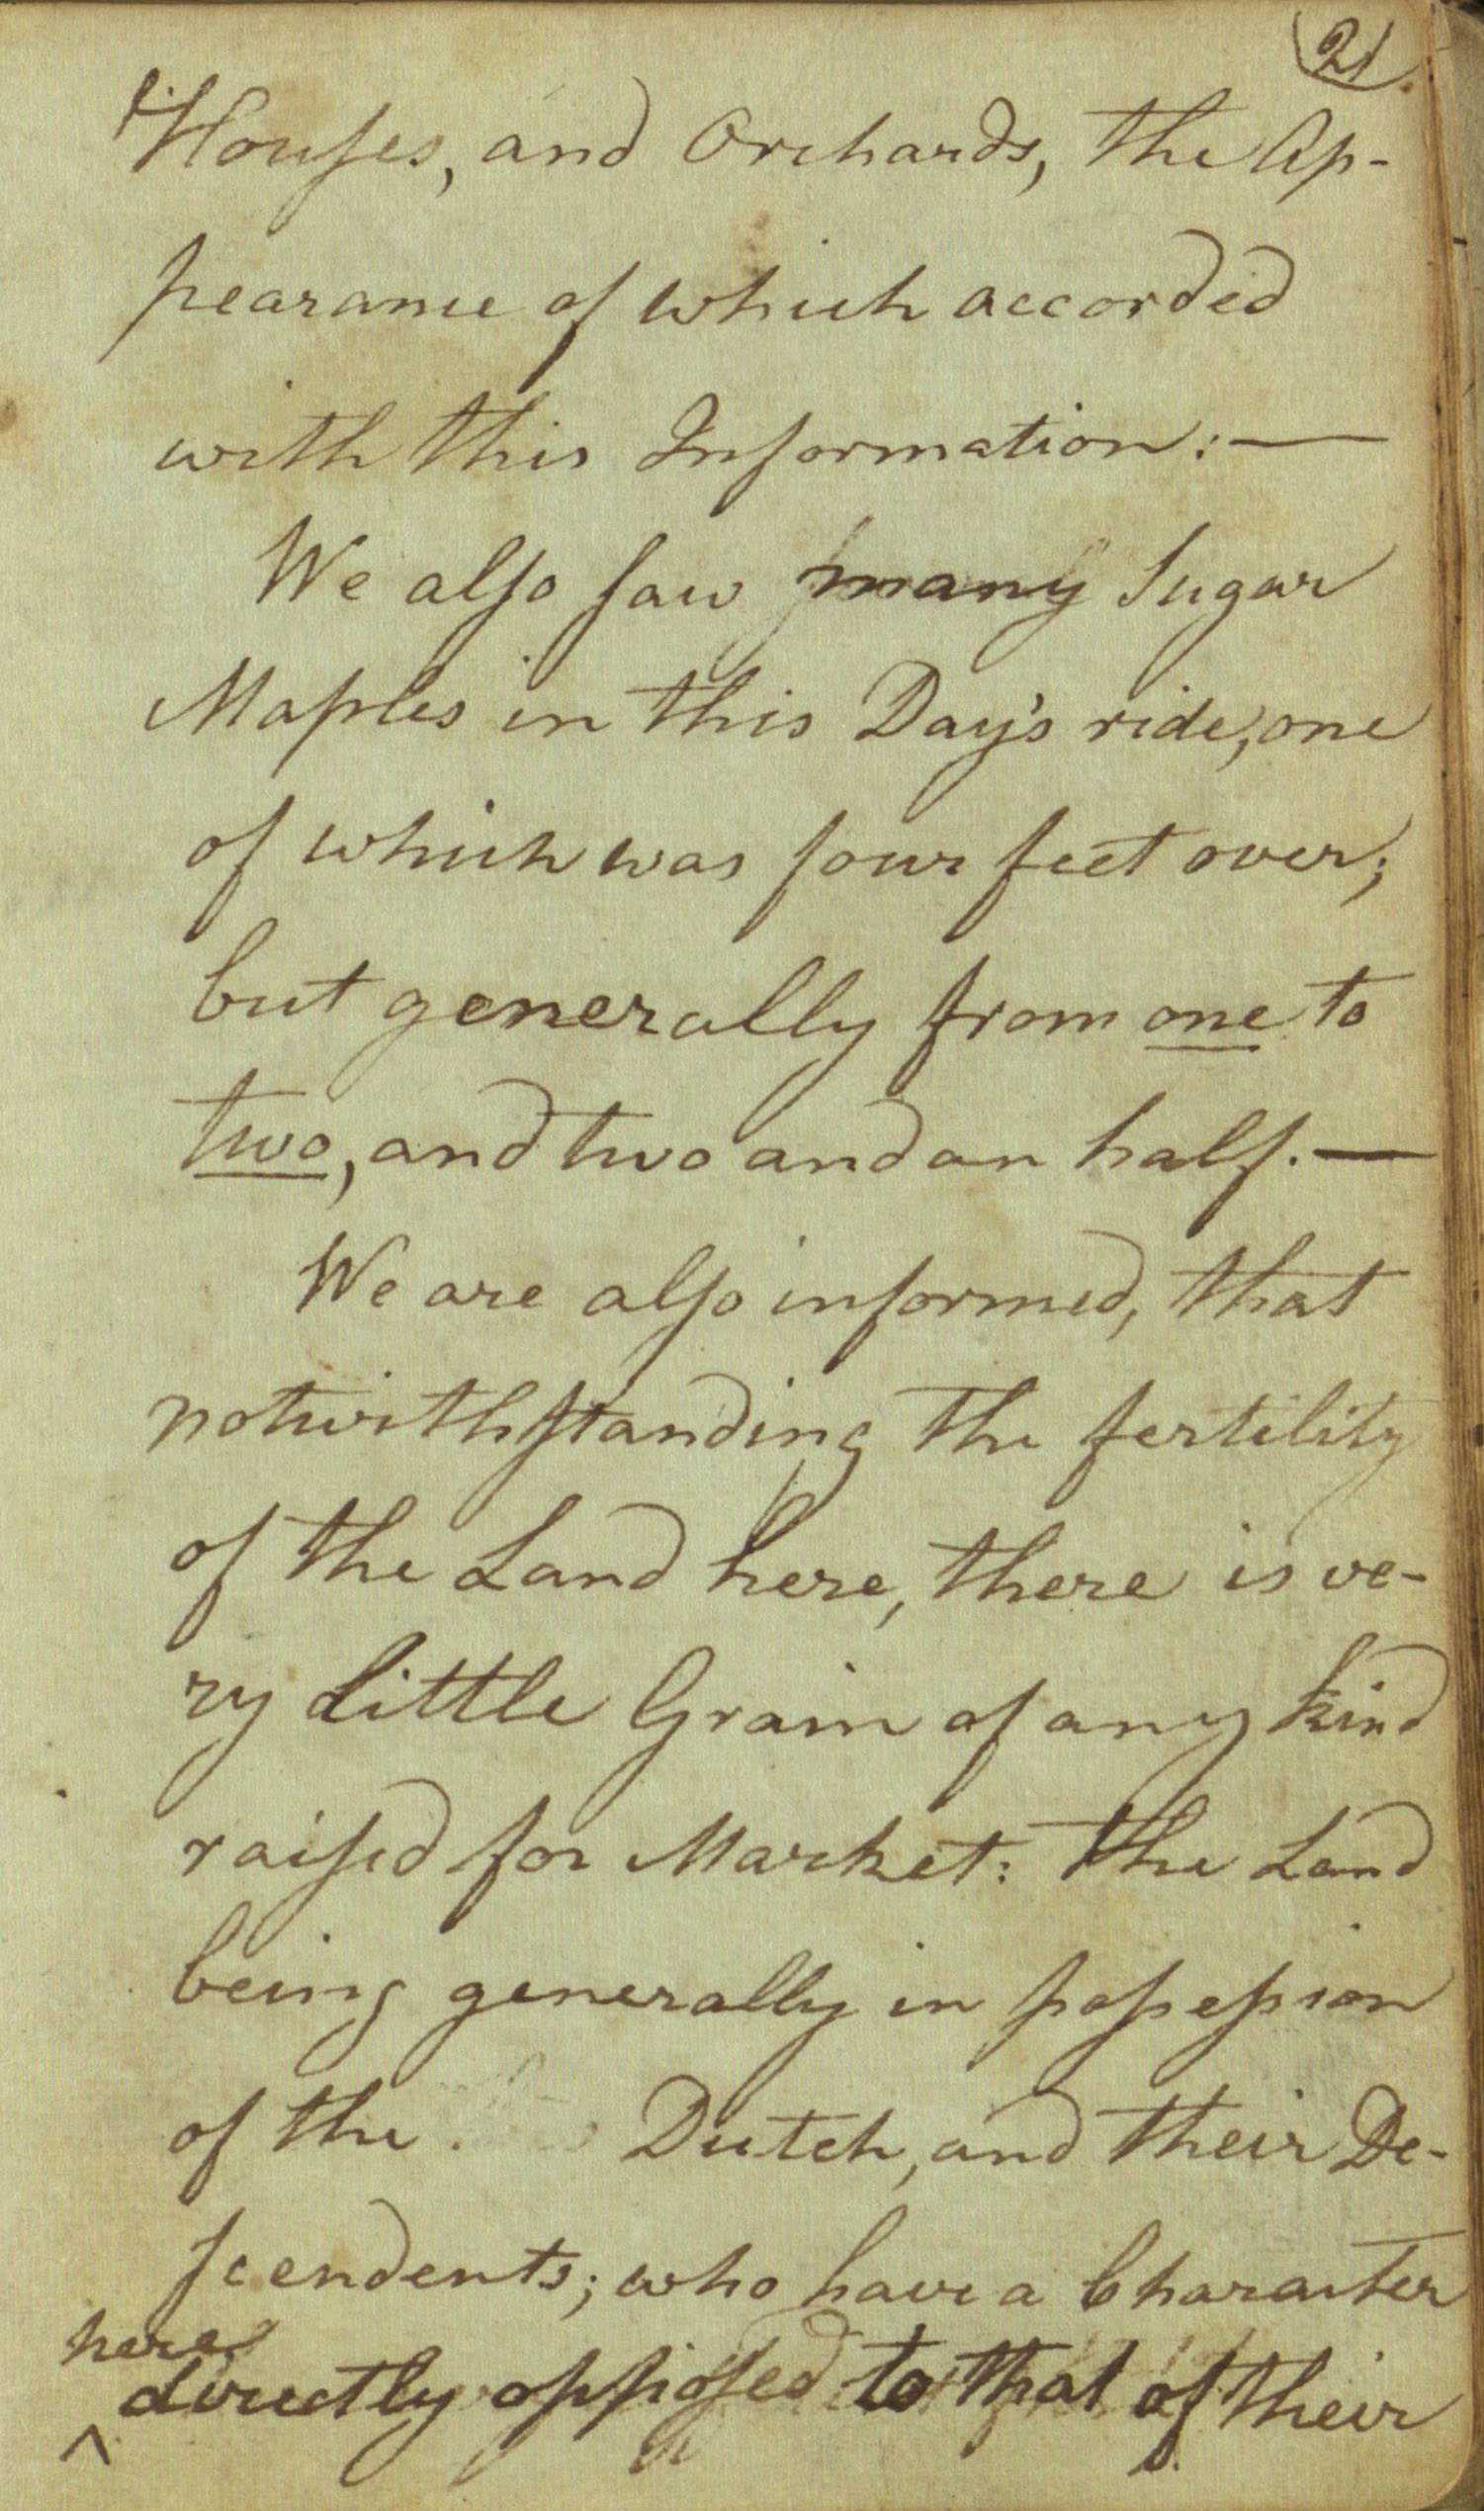 21.
Houses, and Orchards, the Ap-
pearance of which accorded
with this Information: —
We also saw many Sugar
Maples in this Day's ride, one
of which was four feet over;
but generally from one to
two, and two and an half. —
We are also informed, that
notwithstanding the fertility
of the Land here, there is ve-
ry Little Grain of any kind
raised for Market: the Land
being generally in possession
of the Dutch, and their De-
scendents; who have a Character
here
^ directly opposed to that of their